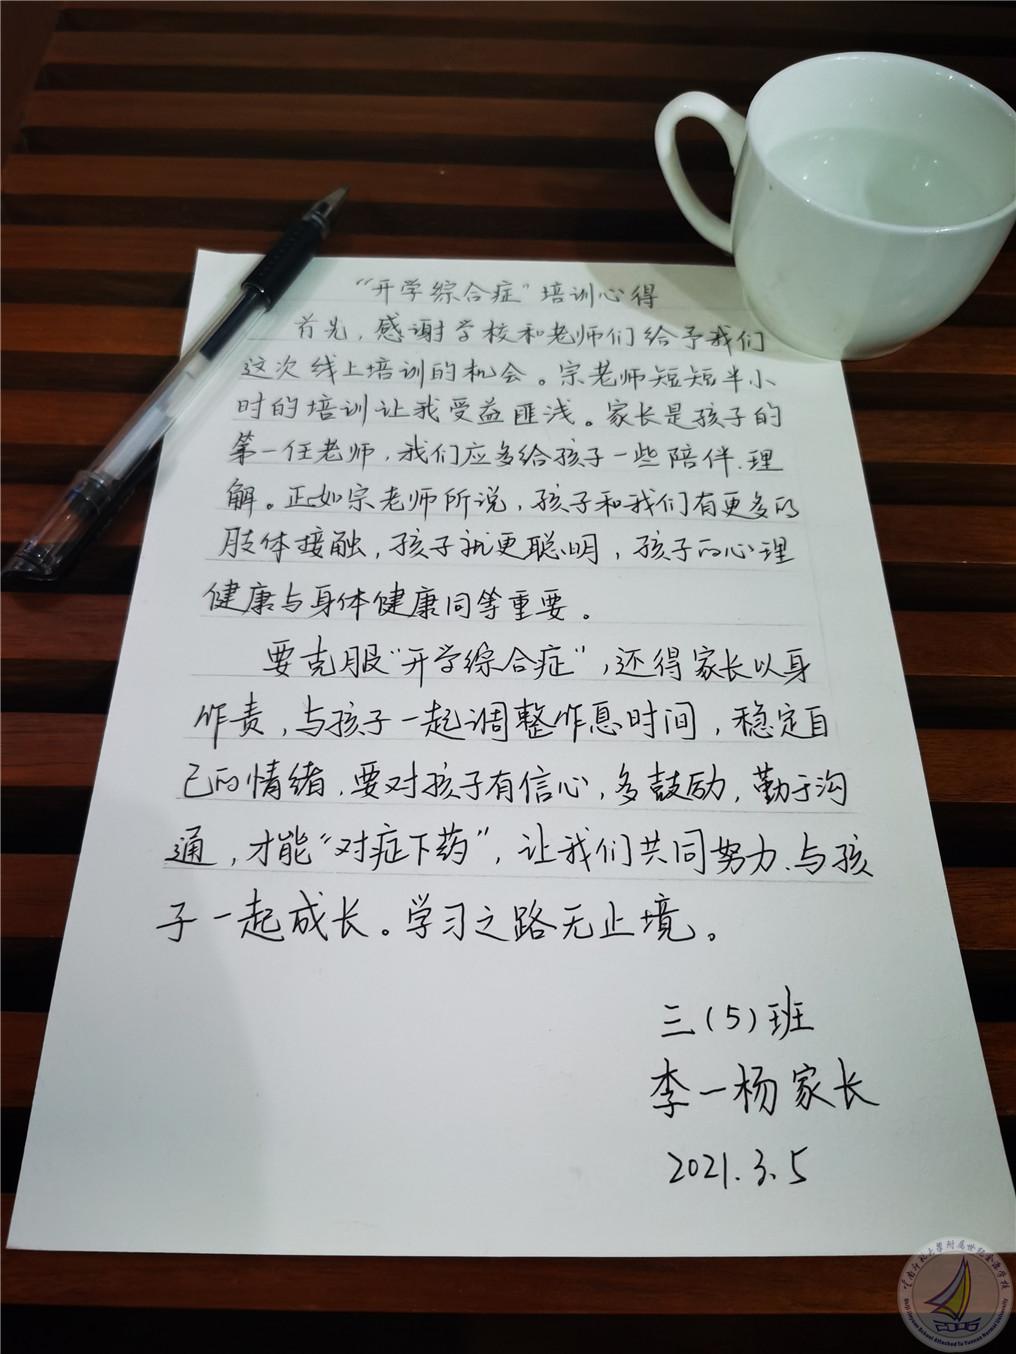 “开学综合症”培训心得
首先，感谢学校和老师们给予我们
这次线上培训的机会。宗老师短短半小
时的培训让我受益匪浅。家长是孩子的
第一任老师，我们应多给孩子一些陪伴、理
解。正如宗老师所说，孩子和我们有更多的
肢体接触，孩子就更聪明，孩子的心理
健康与身体健康同等重要。
要克服“开学综合症”，还得家长以身
作责，与孩子一起调整作息时间，稳定自
己的情绪，要对孩子有信心，多鼓励，勤于沟
通，才能“对症下药”，让我们共同努力、与孩
子一起成长。学习之路无止境。
三（5）班
李一杨家长
2021.3.5
云南师范大学附属世纪金源学校
Shiji Jinyuan School Attached To Yunnan Normal University